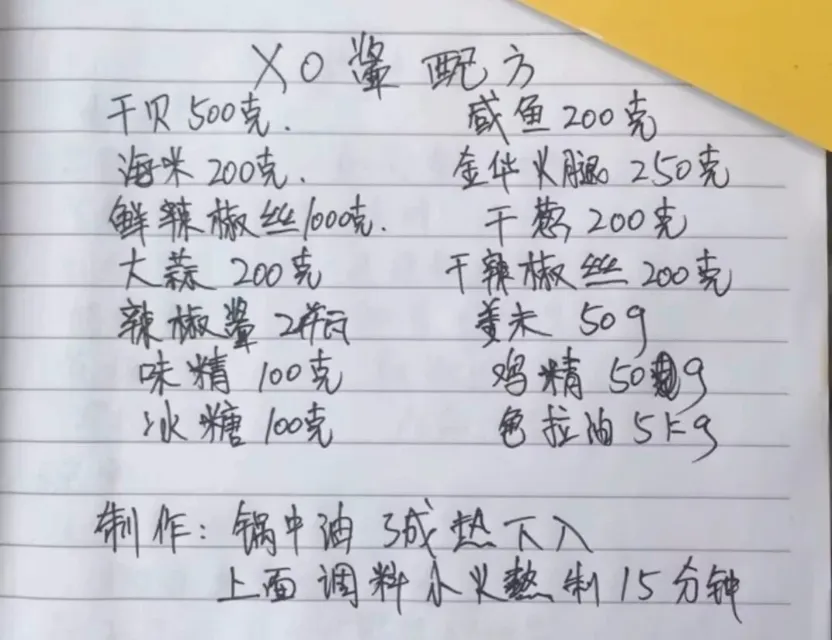 XO酱配方
干贝500克. 咸鱼200克
海米200克. 金华火腿250克
鲜辣椒丝1000克. 干葱200克
大蒜200克 干辣椒丝200克
辣椒酱2瓶 姜末50g
味精100克 鸡精50g
冰糖100克 色拉油5kg
制作:锅中油3成热下入
上面调料小火熬制15分钟